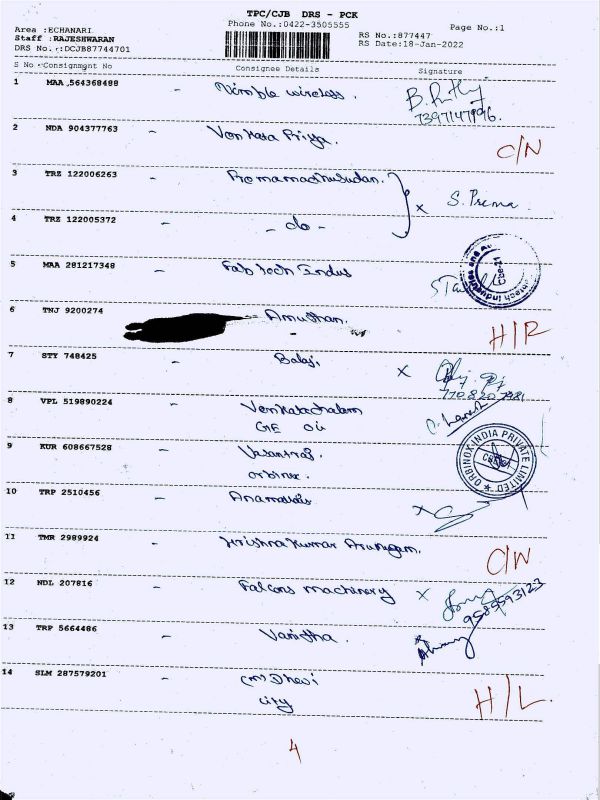 TPC/CJB DRS - PCK
Phone No.:0422-3505555
Page No.:1
Area :ECHANARI
Staff :RAJESHWARAN
DRS No.:DCJB87744701
RS No.:877447
RS Date:18-Jan-2022
S No Consignment No Consignee Details Signature
1 MAA 564368488 - Nimble wireless.
7397147996.
2 NDA 904377763 - Venkata Priya. C/N
3 TRZ 122006263 - Ramamadhusudan.
x S. Prema
4 TRZ 122005372 - - do -
5 MAA 281217348 - Fab Tech Indus
6 TNJ 9200274 - Amuthan. H/R
7 STY 748425 - Balaji x
8 VPL 519890224 - Venkatachalam
9 KUR 608667528 - Vasantraj.
Orbinox.
ORBINOX INDIA PRIVATE LIMITED
10 TRP 2510456 - x
11 TMR 2989924 - Krishna Kumar Arumugam.
12 NDL 207816 - Falcons machinery x
9585593123
13 TRP 5664486 - Vanitha.
14 SLM 287579201 -
city H/L
4